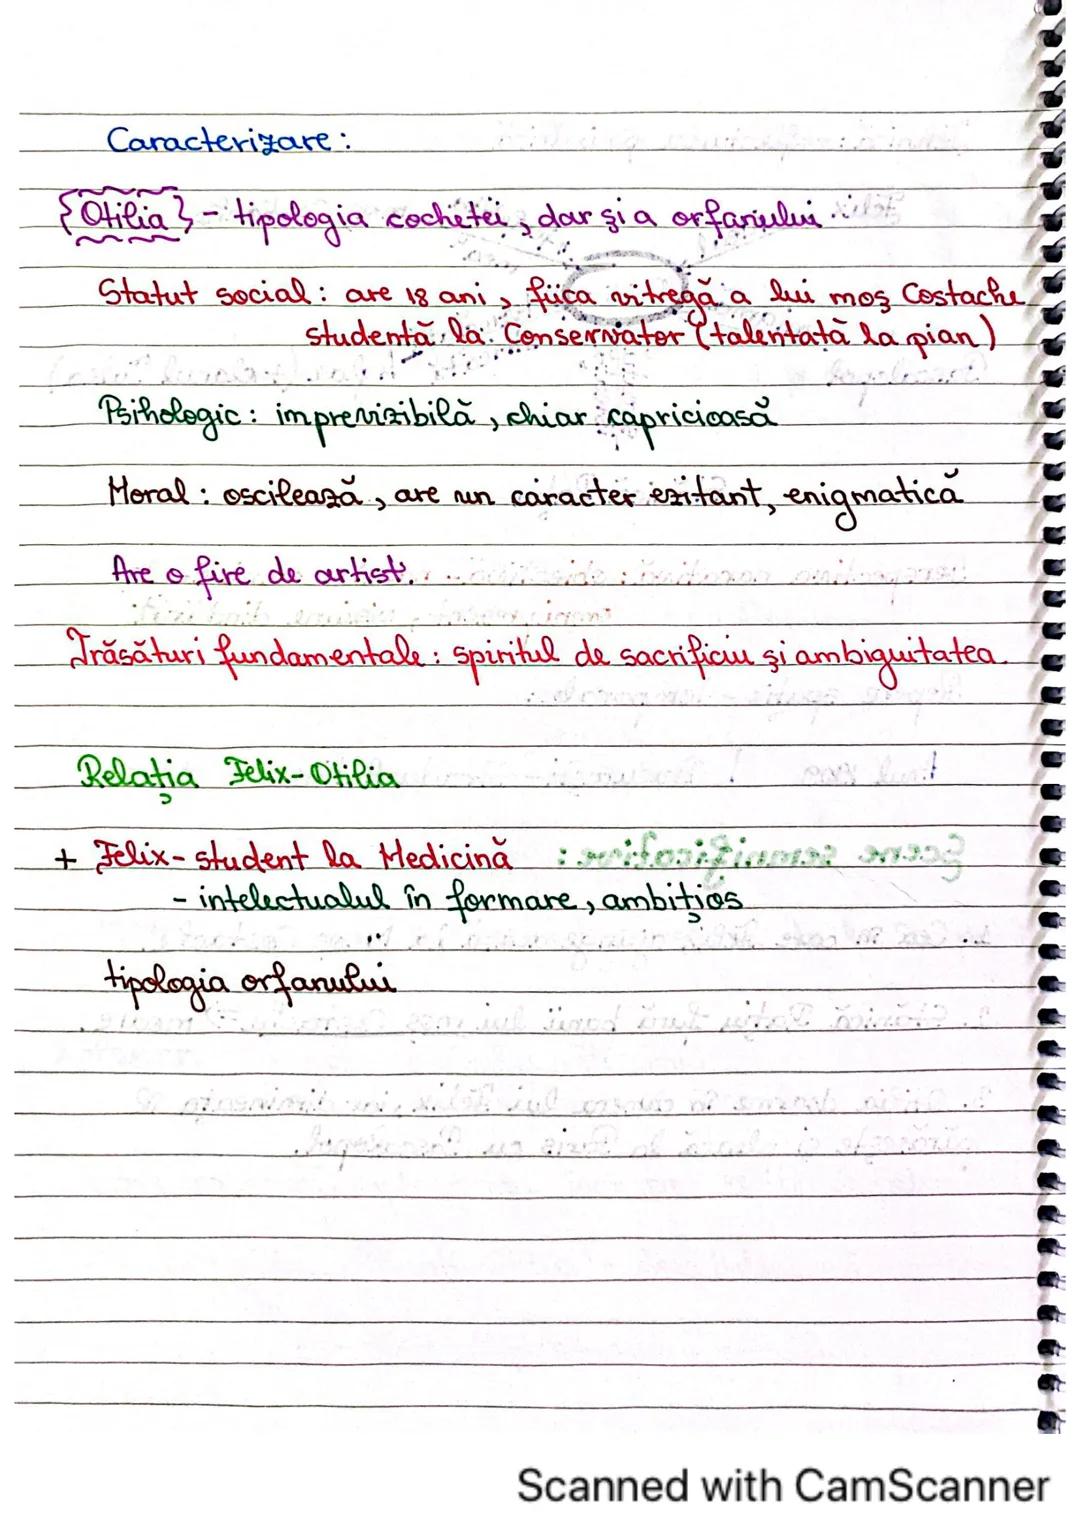 Caracterizare:
{Otilia} - tipologia cochetei, dar și a orfanului.
Statut social: are 18 ani, fiica vitregă a lui moș Costache
studentă la Conservator (talentată la pian)
Psihologic: imprevizibilă, chiar capricioasă
Moral: oscilează, are un caracter ezitant, enigmatică
Are o fire de artist.
Trăsături fundamentale: spiritul de sacrificiu și ambiguitatea.
Relația Felix-Otilia
+ Felix - student la Medicină
- intelectualul în formare, ambițios
tipologia orfanului
Scanned with CamScanner